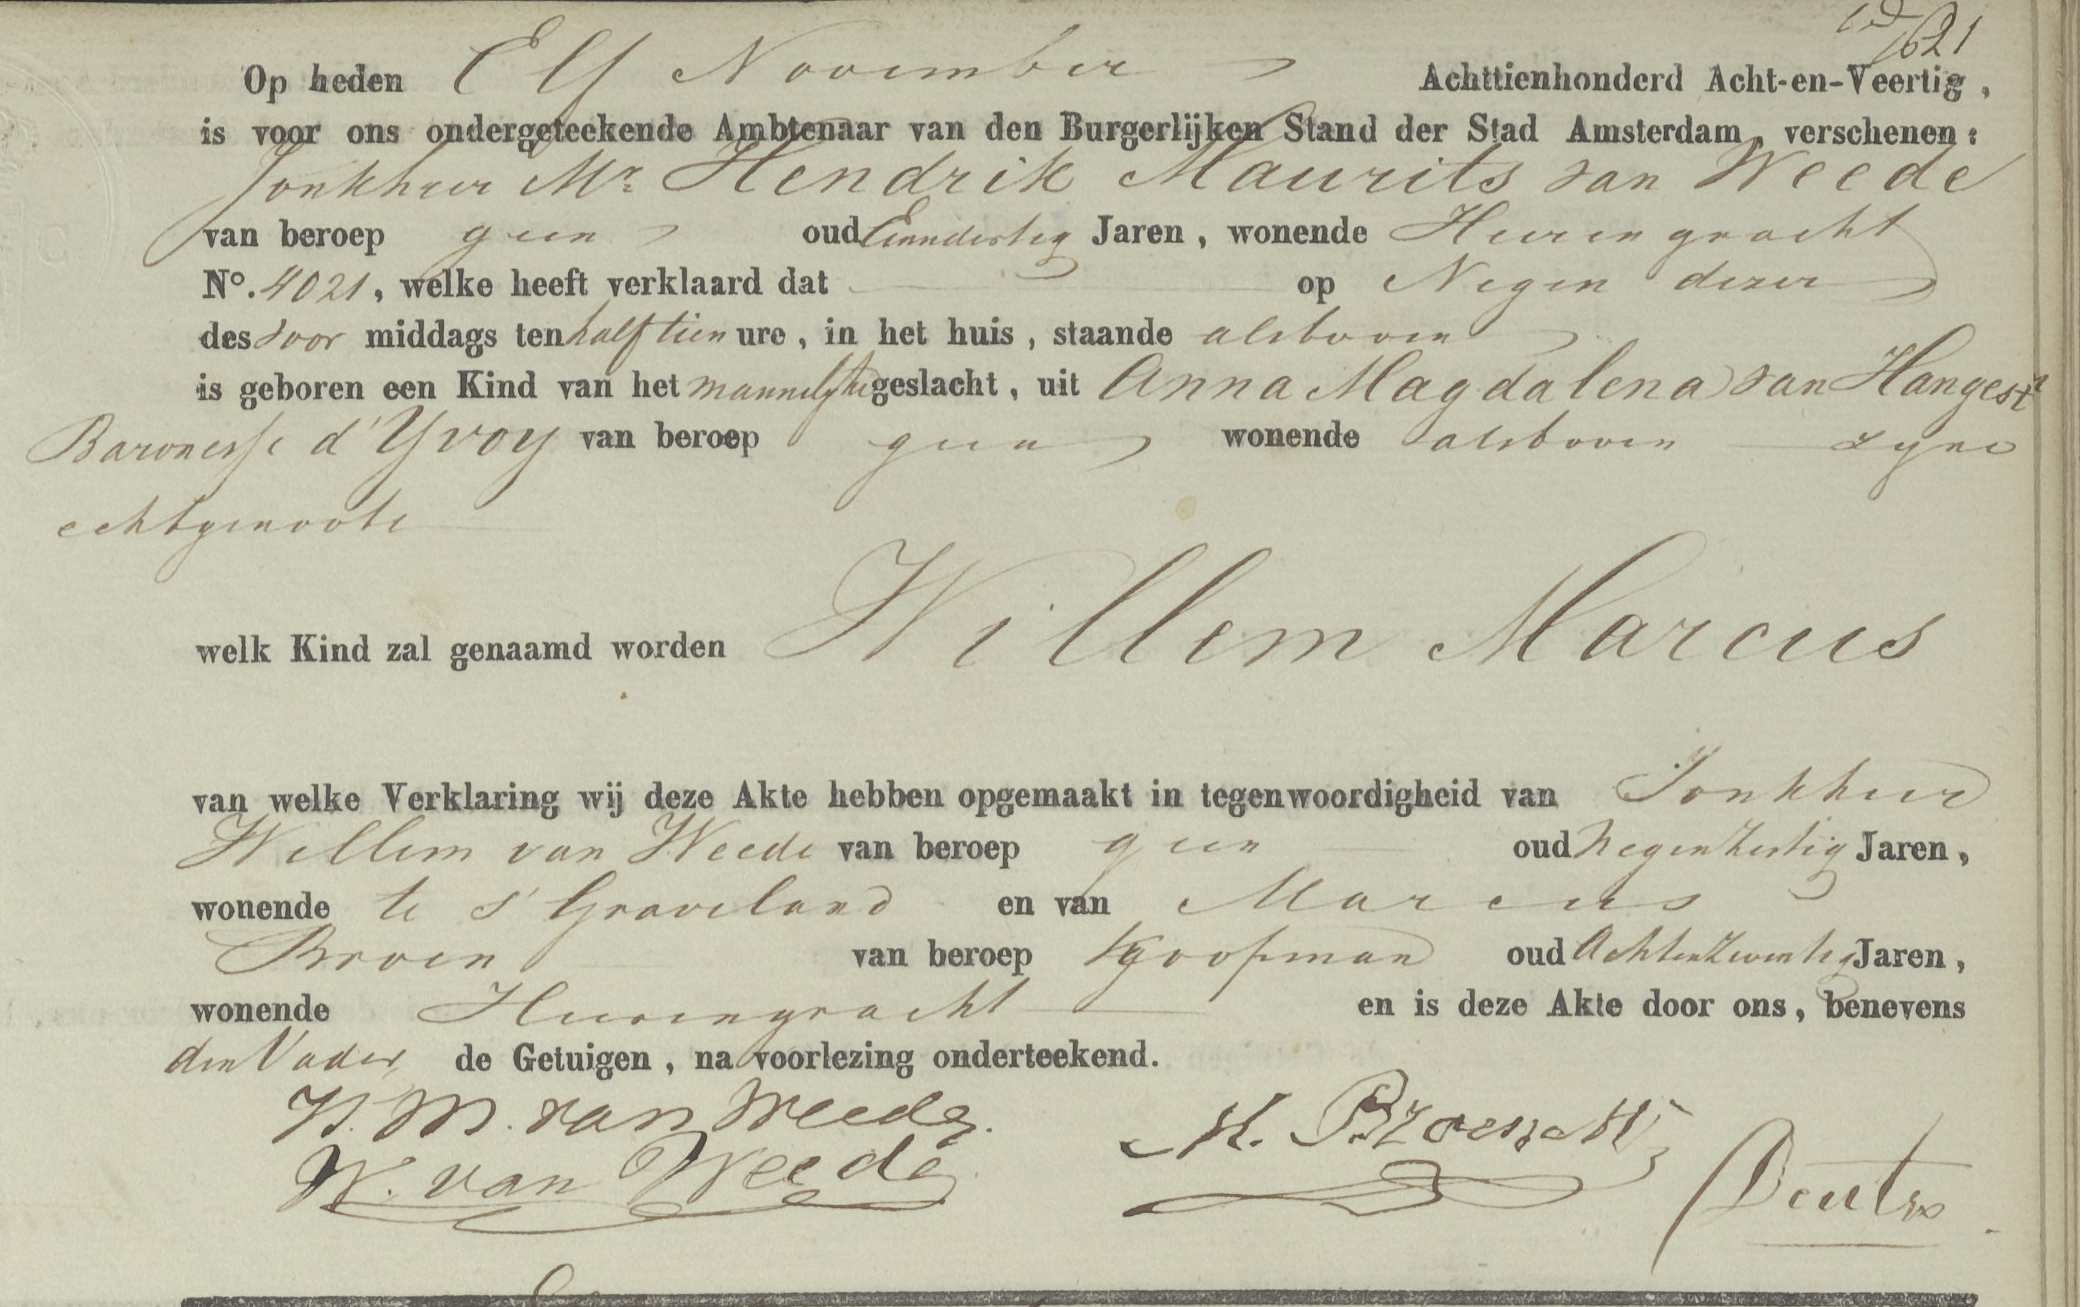 621
Op heden Elf November Achttienhonderd Acht-en-Veertig,
is voor ons ondergeteekende Ambtenaar van den Burgerlijken Stand der Stad Amsterdam, verschenen:
Jonkheer Mr. Hendrik Maurits van Weede
van beroep geen oud Eenendertig Jaren, wonende Heerengracht
No. 4021, welke heeft verklaard dat op Negen dezer
des voor middags ten half tien ure, in het huis, staande alsboven
is geboren een Kind van het mannelyke geslacht, uit Anna Magdalena van Hangest
Baronesse d'Yvoy van beroep geen wonende alsboven zyne
echtgenoote
welk Kind zal genaamd worden Willem Marcus
van welke Verklaring wij deze Akte hebben opgemaakt in tegenwoordigheid van Jonkheer
Willem van Weede van beroep geen oud Jaren,
wonende te s'Graveland en van Marcus
Broen van beroep Koopman oud Jaren,
wonende Heerengracht en is deze Akte door ons, benevens
den Vader, de Getuigen, na voorlezing onderteekend.
H. M. van Weede.
W. van Weede
M. Broen